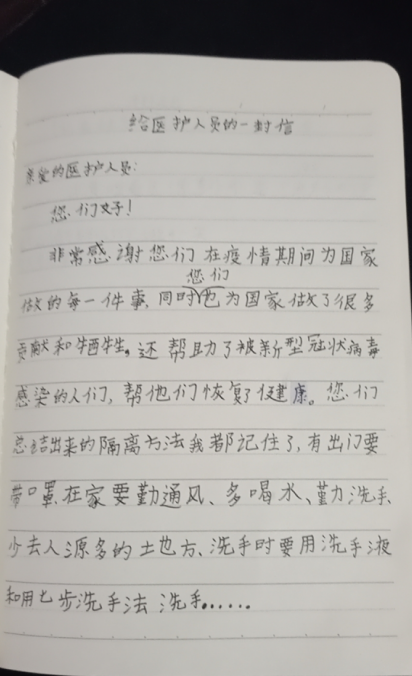 给医护人员的一封信
亲爱的医护人员:
您们好!
非常感谢您们在疫情期间为国家
做的每一件事,同时您们也为国家做了很多
贡献和牺牲。还帮助了被新型冠状病毒
感染的人们,帮他们恢复了健康。您们
总结出来的隔离方法我都记住了,有出门要
带口罩、在家要勤通风、多喝水、勤洗手、
少去人源多的土也方、洗手时要用洗手液
和用七步洗手法洗手……